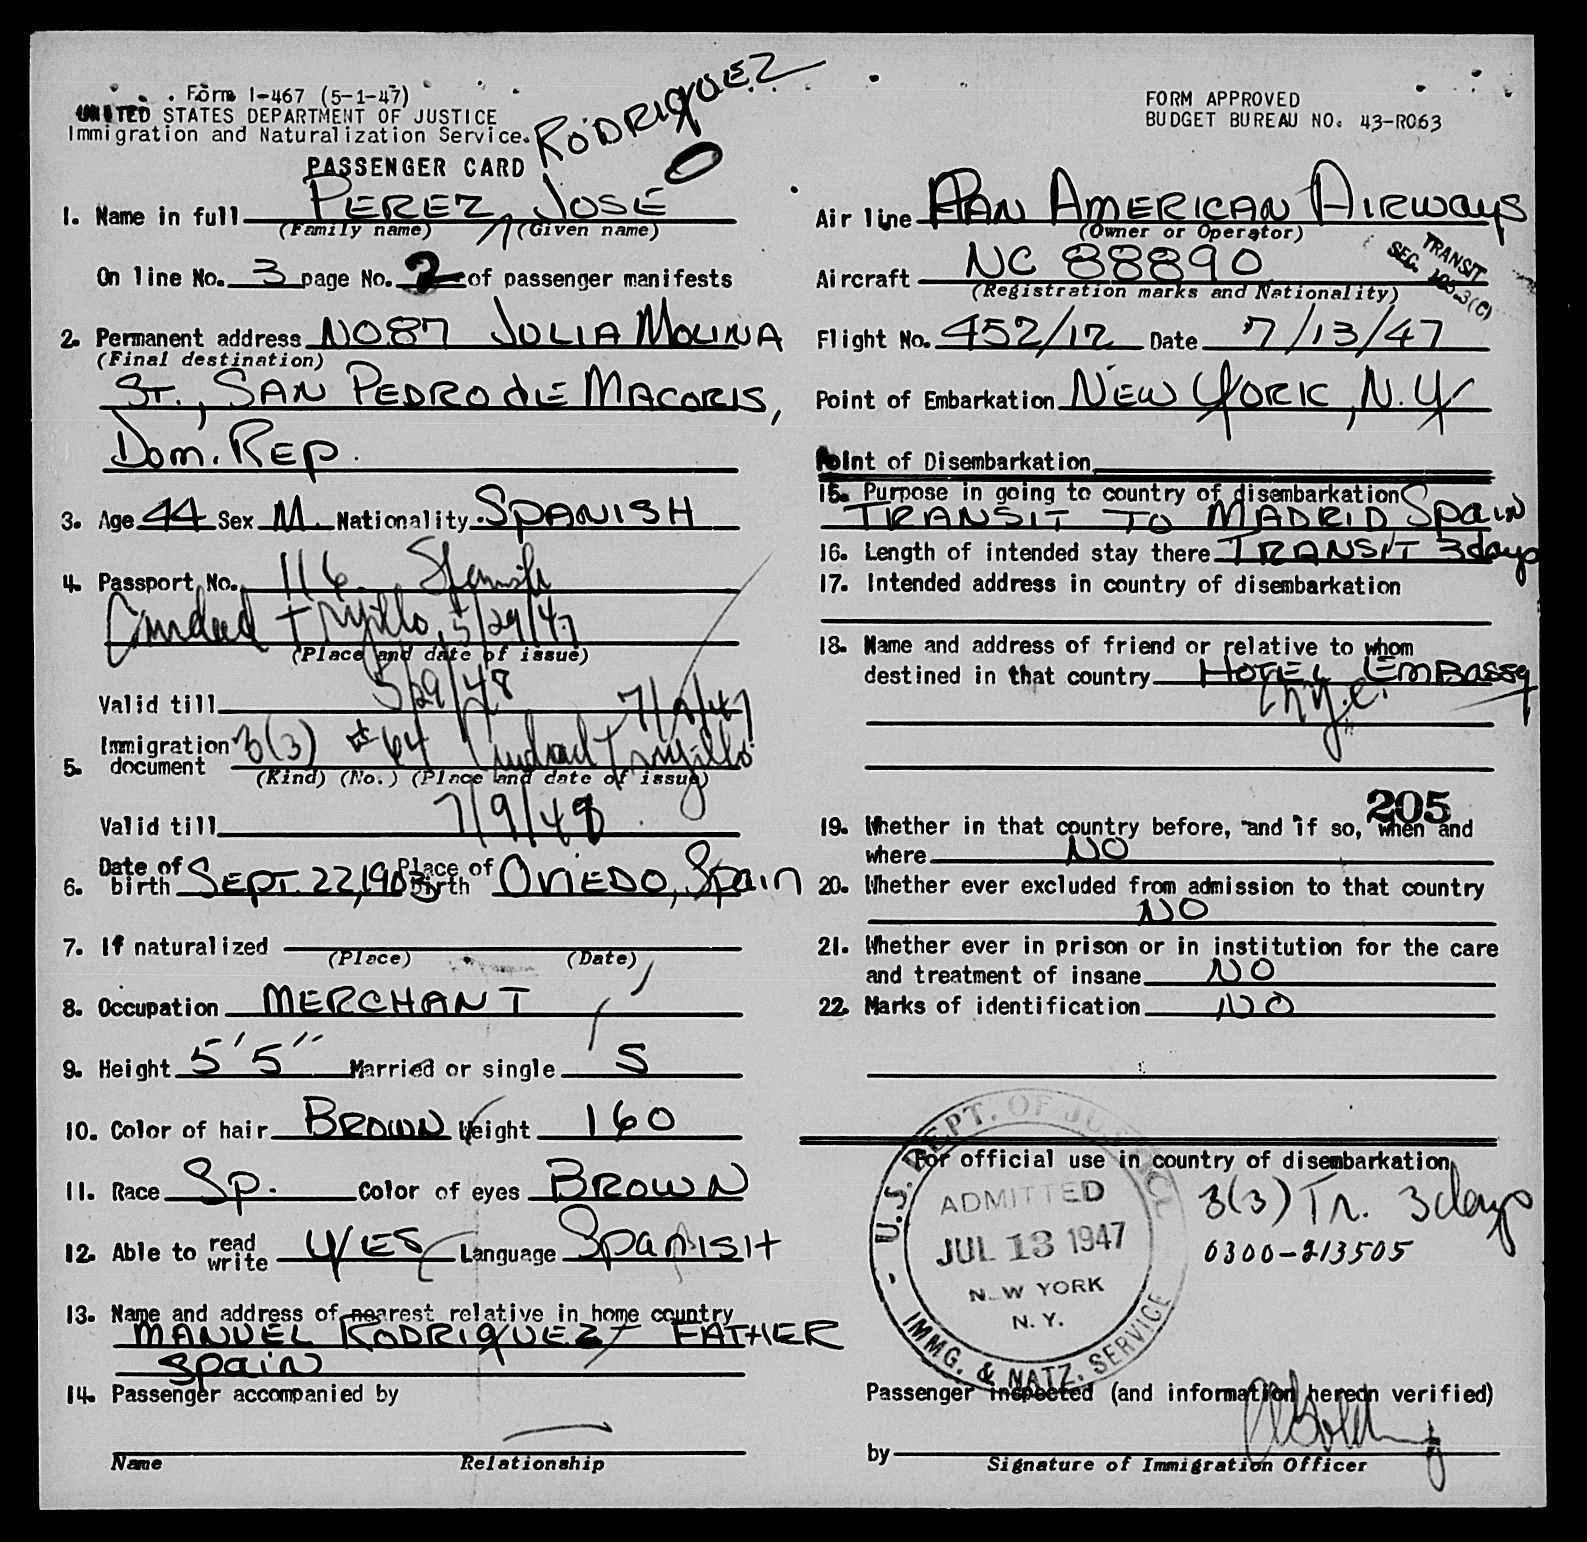 Form I-467 (5-1-47)
UNITED STATES DEPARTMENT OF JUSTICE
Immigration and Naturalization Service.
RODRIQUEZ
PASSENGER CARD
1. Name in full PEREZ, JOSE
(Family name) (Given name)
On line No. 3 page No. 2 of passenger manifests
2. Permanent address NO87 JULIA MOLINA
(Final destination)
ST., SAN PEDRO de MACORIS,
Dom. REP.
3. Age 44 Sex M. Nationality SPANISH
4. Passport No. 116 Spanish
Ciudad Trujillo, 5/29/47
(Place and date of issue)
Valid till 5/29/48
7/9/47
5. Immigration document 3(3) #64 Ciudad Trujillo
(Kind) (No.) (Place and date of issue)
Valid till 7/9/48
6. Date of birth SEPT. 22, 1903 Place of birth OVIEDO, Spain
7. If naturalized
(Place) (Date)
8. Occupation MERCHANT
9. Height 5'5" Married or single S
10. Color of hair BROWN Weight 160
11. Race Sp. Color of eyes BROWN
12. Able to read write YES Language SPANISH
13. Name and address of nearest relative in home country
MANUEL RODRIQUEZ - FATHER
Spain
14. Passenger accompanied by
Name Relationship
FORM APPROVED
BUDGET BUREAU NO. 43-R063
Air line PAN AMERICAN AIRWAYS
(Owner or Operator)
TRANSIT
SEC. 105.3(C)
Aircraft NC 88890
(Registration marks and Nationality)
Flight No. 452/12 Date 7/13/47
Point of Embarkation NEW YORK, N.Y.
Point of Disembarkation
15. Purpose in going to country of disembarkation
TRANSIT TO MADRID Spain
16. Length of intended stay there TRANSIT 3days
17. Intended address in country of disembarkation
18. Name and address of friend or relative to whom
destined in that country HOTEL EMBASSY
N.Y.C.
205
19. Whether in that country before, and if so, when and
where NO
20. Whether ever excluded from admission to that country
NO
21. Whether ever in prison or in institution for the care
and treatment of insane NO
22. Marks of identification NO
For official use in country of disembarkation
3(3) Tr. 3 days
0300-213505
U.S. DEPT. OF JUSTICE
ADMITTED
JUL 13 1947
NEW YORK
N.Y.
IMMG. & NATZ. SERVICE
Passenger inspected (and information herein verified)
by
Signature of Immigration Officer